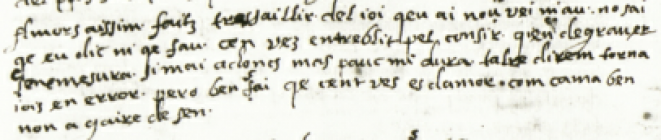 Amors aissim faitz tressaillir del ioi qeu ai non vei ni au. no sai
qe eu dic ni qe fau Cen vez entreblit pel consir qien degraver
sen e mesura. si mai adoncs mas pauc mi dura talre direm torna
iois en error. pero ben sai qe cent ves es clamor. com cama ben
non a gaire de sen.